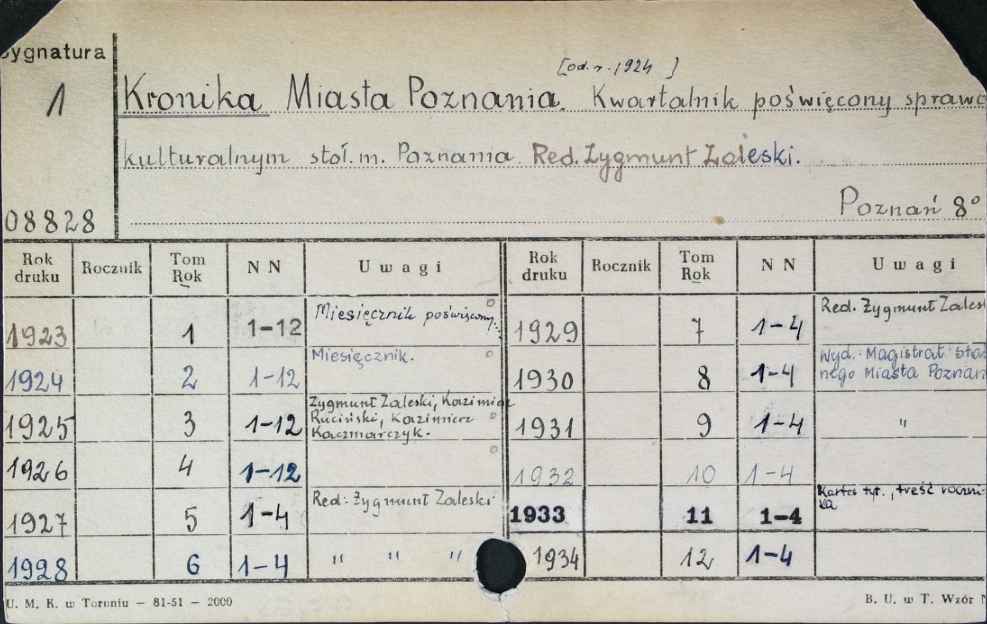 Sygnatura
1
[od. r. 1924 ]
Kronika Miasta Poznania. Kwartalnik poświęcony spraw
kulturalnym stoł. m. Poznania. Red. Zygmunt Zaleski.
08828
Poznań 8°
Rok druku Rocznik Tom Rok N N Uwagi Rok druku Rocznik Tom Rok N N Uwagi
1923 1 1-12 Miesięcznik poświęcony 1929 7 1-4 Red. Zygmunt Zalesk
1924 2 1-12 Miesięcznik. 1930 8 1-4 Wyd. Magistrat
nego Miasta Poznan
1925 3 1-12 Zygmunt Zaleski, Kazimierz
Ruciński, Kazimierz
Kaczmarczyk. 1931 9 1-4 "
1926 4 1-12 1932 10 1-4
1927 5 1-4 Red: Zygmunt Zaleski 1933 11 1-4 Karta tyt., treść roczni-
ka
1928 6 1-4 " " " 1934 12 1-4
U. M. K. w Toruniu — 81-51 — 2000
B. U. w T. Wzór N